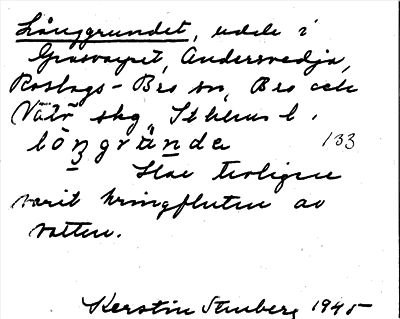 Långgrundet, udde i
Gräsvarpet, Andersvedja,
Roslags-Bro sn, Bro och
Vätö skg, Sthlms l.
lòŋgrände 133
Har troligen
varit kringfluten av
vatten.
Kerstin Stenberg 1945